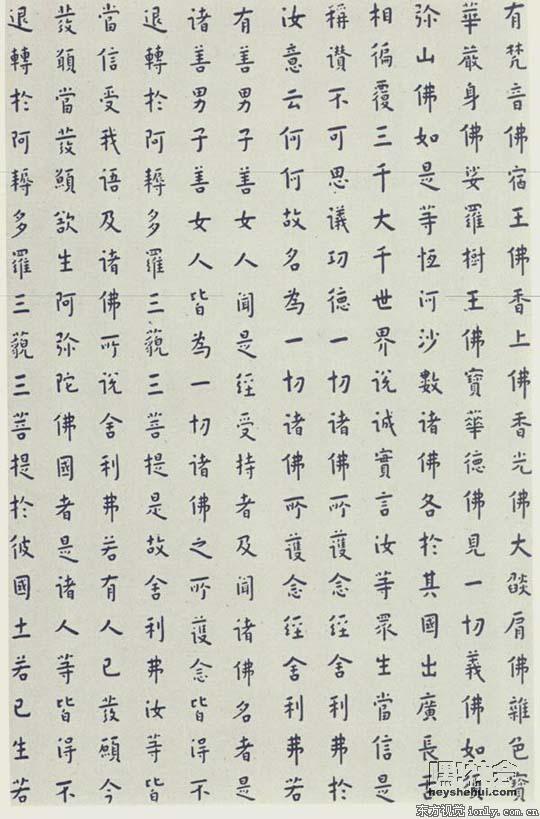 有梵音佛宿王佛香上佛香光佛大燄肩佛雜色寶
華嚴身佛娑羅樹王佛寶華德佛見一切義佛如須
弥山佛如是等恆河沙數諸佛各於其國出廣長舌
相徧覆三千大千世界說誠實言汝等眾生當信是
稱讚不可思議功德一切諸佛所護念經舍利弗於
汝意云何何故名為一切諸佛所護念經舍利弗若
有善男子善女人聞是經受持者及聞諸佛名者是
諸善男子善女人皆為一切諸佛之所護念皆得不
退轉於阿耨多羅三藐三菩提是故舍利弗汝等皆
當信受我語及諸佛所說舍利弗若有人已發願今
發願當發願欲生阿弥陀佛國者是諸人等皆得不
退轉於阿耨多羅三藐三菩提於彼國土若已生若
heyshehui.com
东方视觉 ionly.com.cn